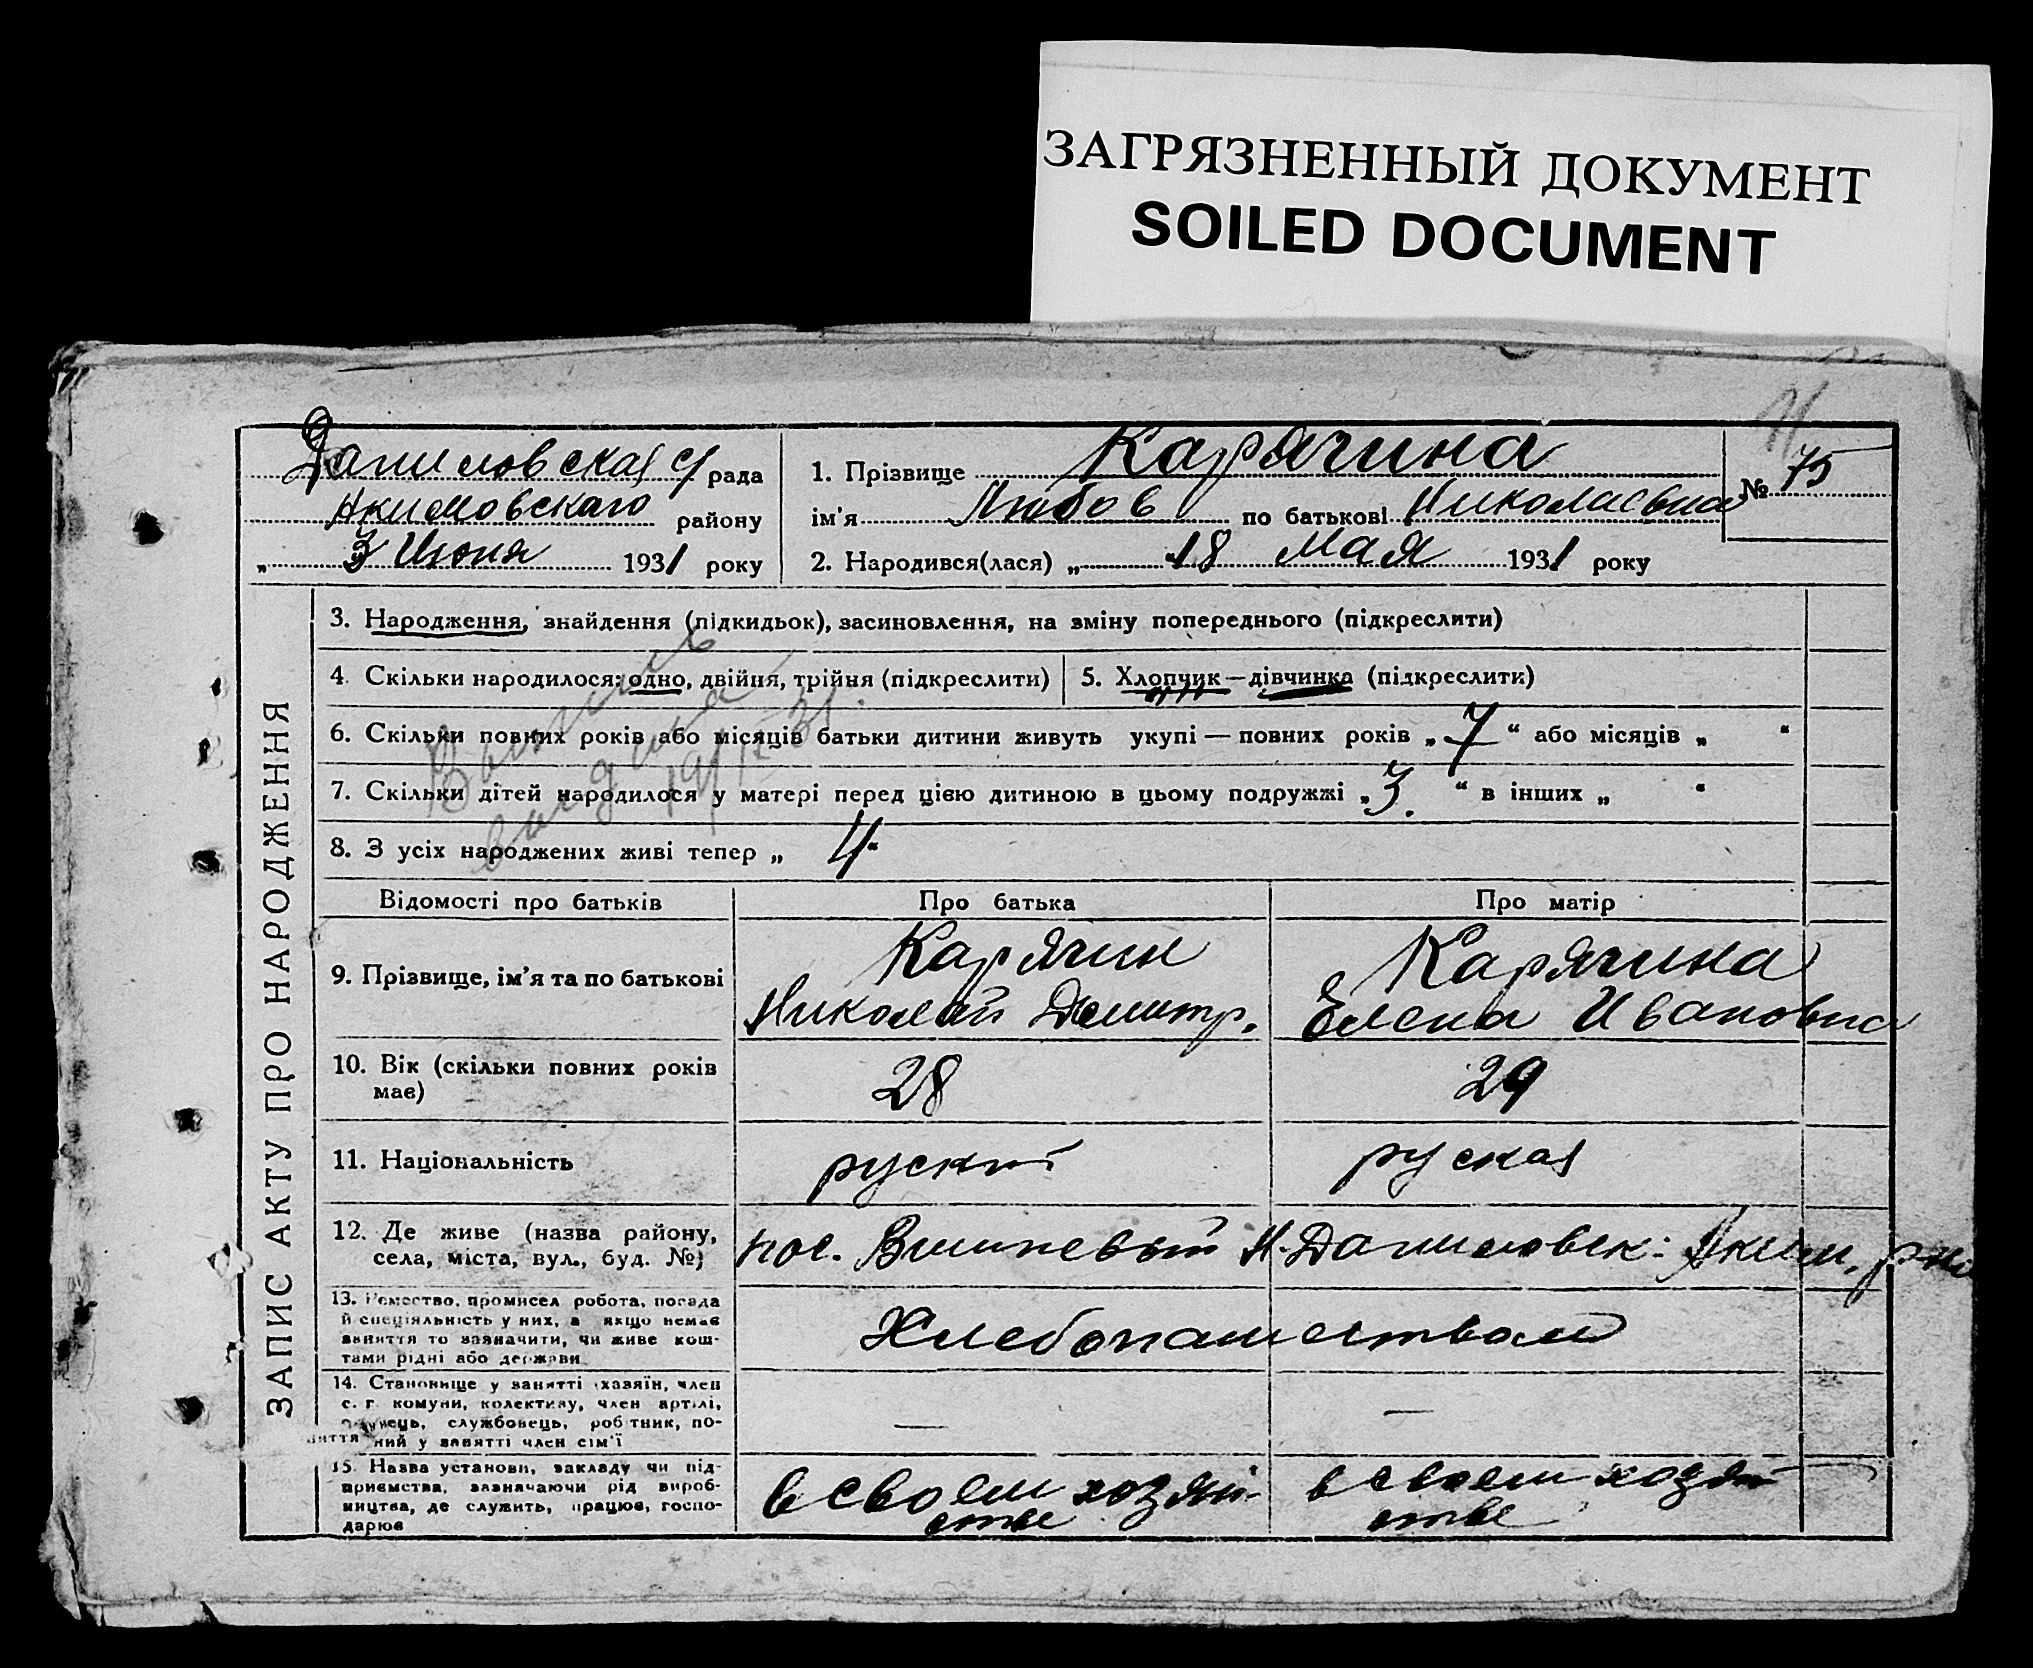 ЗАГРЯЗНЕННЫЙ ДОКУМЕНТ
SOILED DOCUMENT
Даниловская с/рада
Акимовского району
„ 3 Июня 1931 року
1. Прізвище Карячина
№ 75
ім'я Любов по батькові Николаевна
2. Народився(лася) „ 18 Мая 1931 року
ЗАПИС АКТУ ПРО НАРОДЖЕННЯ
3. Народження, знайдення (підкидьок), засиновлення, на зміну попереднього (підкреслити)
4. Скільки народилося: одно, двійня, трійня (підкреслити)
5. Хлопчик—дівчинка (підкреслити)
6. Скільки повних років або місяців батьки дитини живуть укупі — повних років „ 7 “ або місяців „ “
7. Скільки дітей народилося у матері перед цією дитиною в цьому подружжі „ 3. “ в інших „ “
8. З усіх народжених живі тепер „ 4 “
Відомості про батьків Про батька Про матір
9. Прізвище, ім'я та по батькові
Карячин
Николай Демитр.
Карячина
Елена Ивановна
10. Вік (скільки повних років
має)
28 29
11. Національність руский руская
12. Де живе (назва району,
села, міста, вул., буд. №)
пос. Вишневый Н-Даниловск: Аким. р-на
13. Ремество, промисел робота, посада
й спеціяльність у них, а якщо немає
заняття то зазначити, чи живе кош-
тами рідні або держави
Хлебопашеством
14. Становище у занятті хазяїн, член
с. г. комуни, колективу, член артілі,
службовець, робітник, по-
ний у занятті член сім'ї
— —
15. Назва установи, закладу чи під-
приємства, зазначаючи рід вироб-
ництва, де служить, працює, госпо-
дарює
в своем хозяй-
стве
в своем хозяй
стве